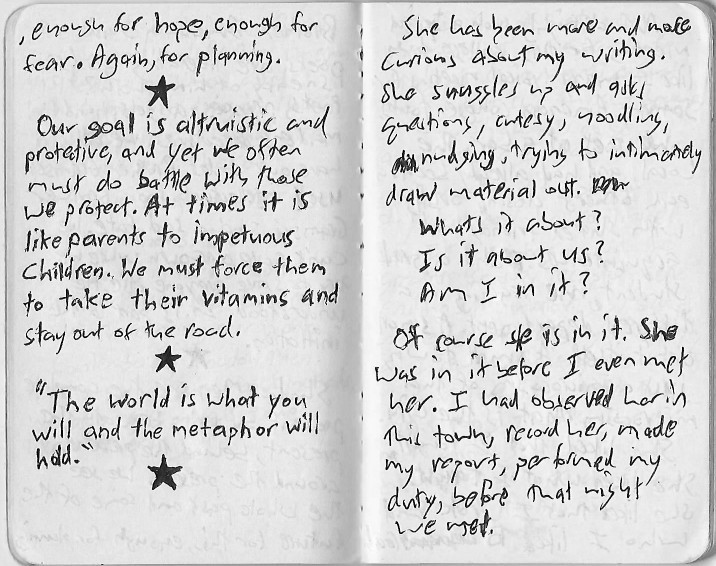 , enough for hope, enough for
fear. Again, for planning.
Our goal is altruistic and
protative, and yet we often
must do battle with those
we protect. At times it is
like parents to impetuous
Children. We must force them
to take their vitamins and
stay out of the road.
"The world is what you
will and the metaphor will
hold."
She has been more and more
curious about my writing.
She snuggles up and asks
questions, cutesy, noodling,
nudging, trying to intimately
draw material out.
Whats it about?
Is it about us?
Am I in it?
Of course she is in it. She
was in it before I even met
her. I had observed her in
this town, record her, made
my report, performed my
duty, before that night
we met.